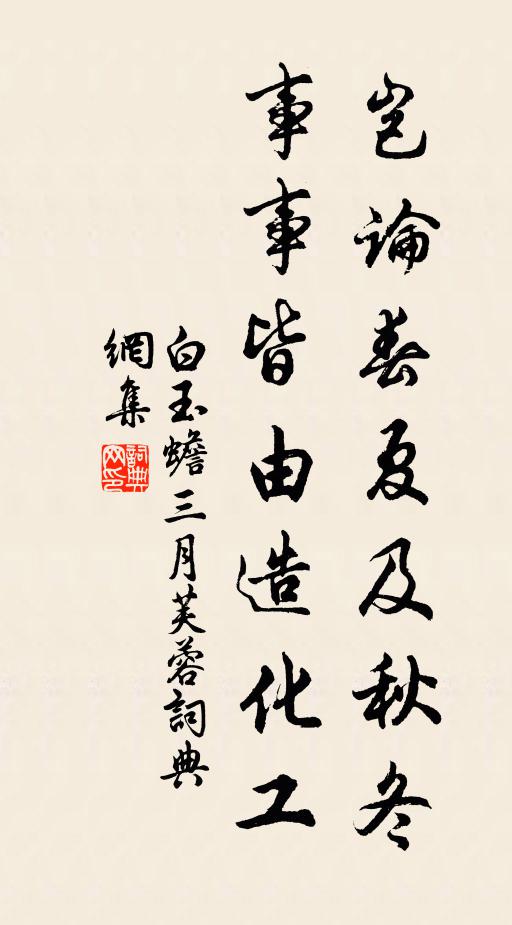 豈論春夏及秋冬
事事皆由造化工
白玉蟾三月芙蓉詞典
網集
詞典
网印